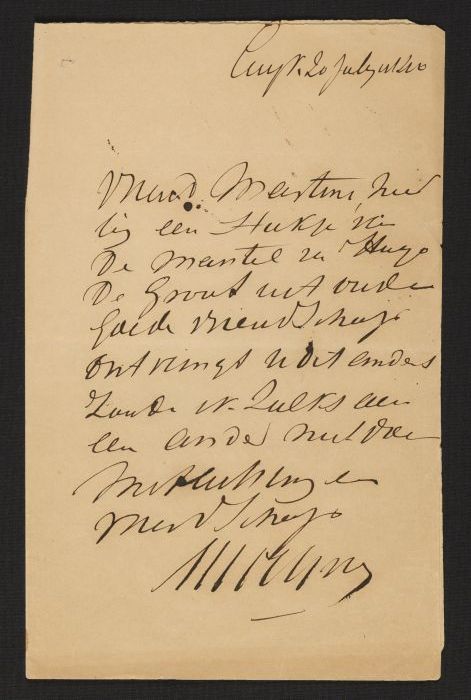 Cuyk. 20 July
Vriend Martini, hier
bij een Stukje van
De Mantel van Hugo
De Groot uit oude
Goede vriendschap
ontvingt u dit anders
zoude ik zulks aan
een ander niet doen
en
vriendschap